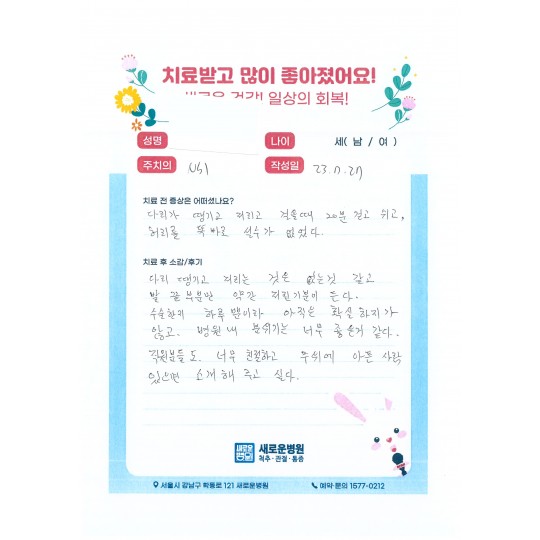 치료받고 많이 좋아졌어요!
일상의 회복!
성명
나이
세( 남 / 여 )
주치의
작성일
치료 전 증상은 어떠셨나요?
다리가 땡기고 저리고 걸을때 20분 걷고 쉬고,
허리를 똑바로 설수가 없었다.
치료 후 소감/후기
다리 땡기고 저리는 것은 없는것 같고
발 끝부분만 약간 저린기분이 든다.
수술한지 하루 뿐이라 아직은 확실하지가
않고. 병원내 분위기는 너무 좋은거 같다.
직원분들도 너무 친절하고 주위에 아픈 사람
있으면 소개해 주고 싶다.
새로운병원
척추·관절·통증
서울시 강남구 학동로 121 새로운병원
예약·문의 1577-0212